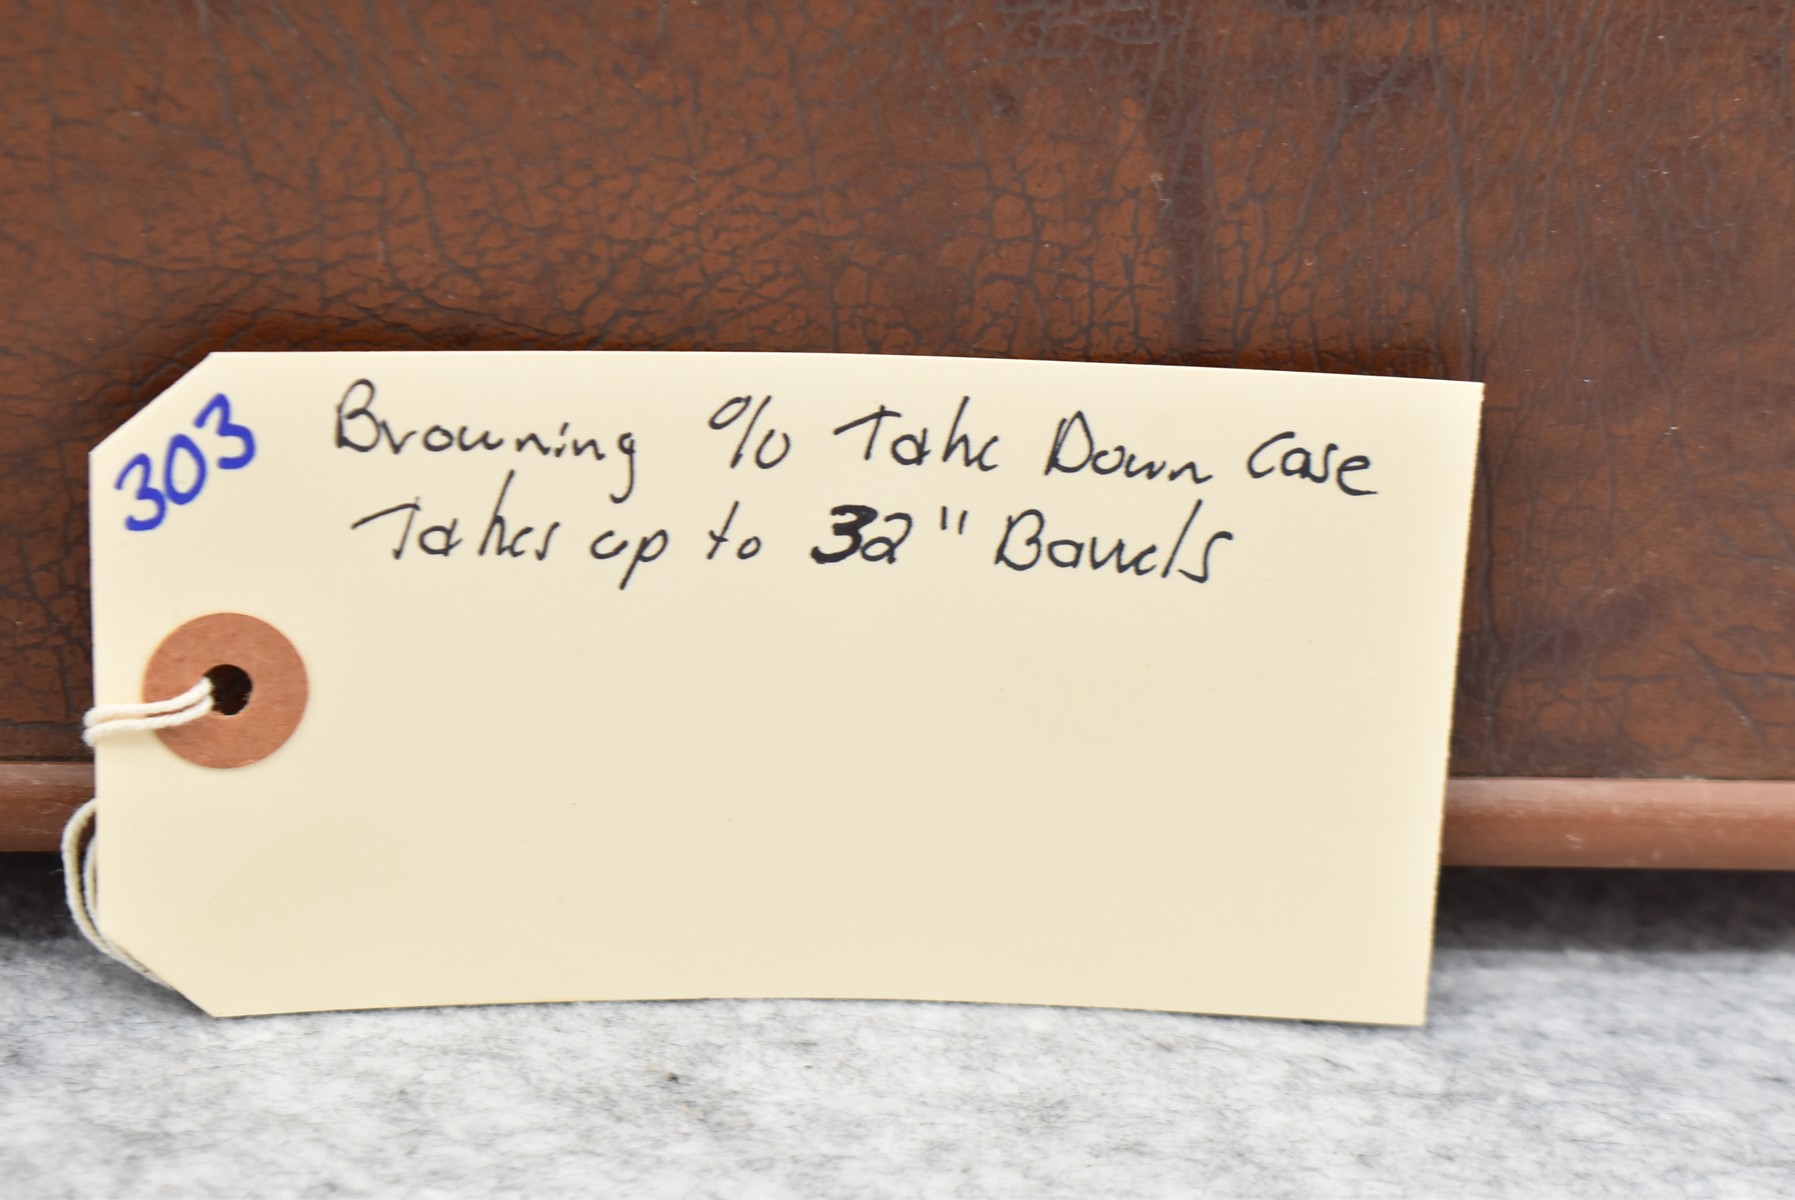 303
Browning O/U Take Down Case
Takes up to 32" Barrels